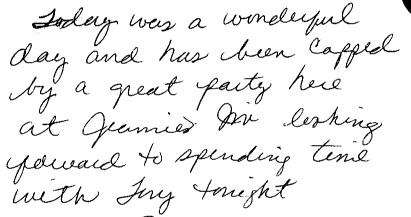 Today was a wonderful
day and has been capped
by a great party here
at Jeannie's I'm looking
forward to spending time
with Tony tonight